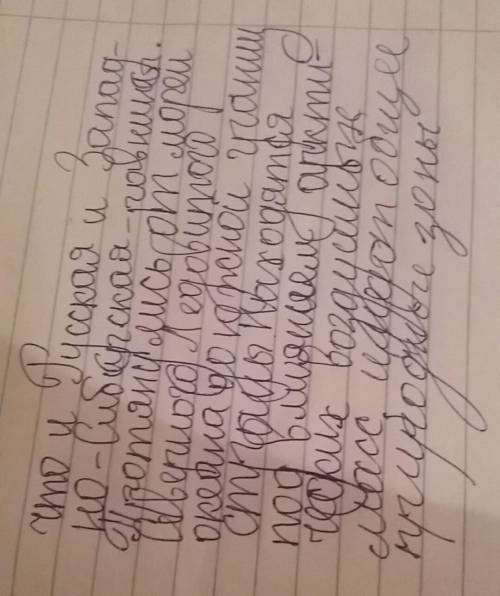 что и Русская и Запад-
но-Сибирская-равнина.
Протянулись от морей
Северного Ледовитого
океана до южной границы
страны Находятся
под влиянием аркти-
ческих воздушных
масс общее
природные зоны